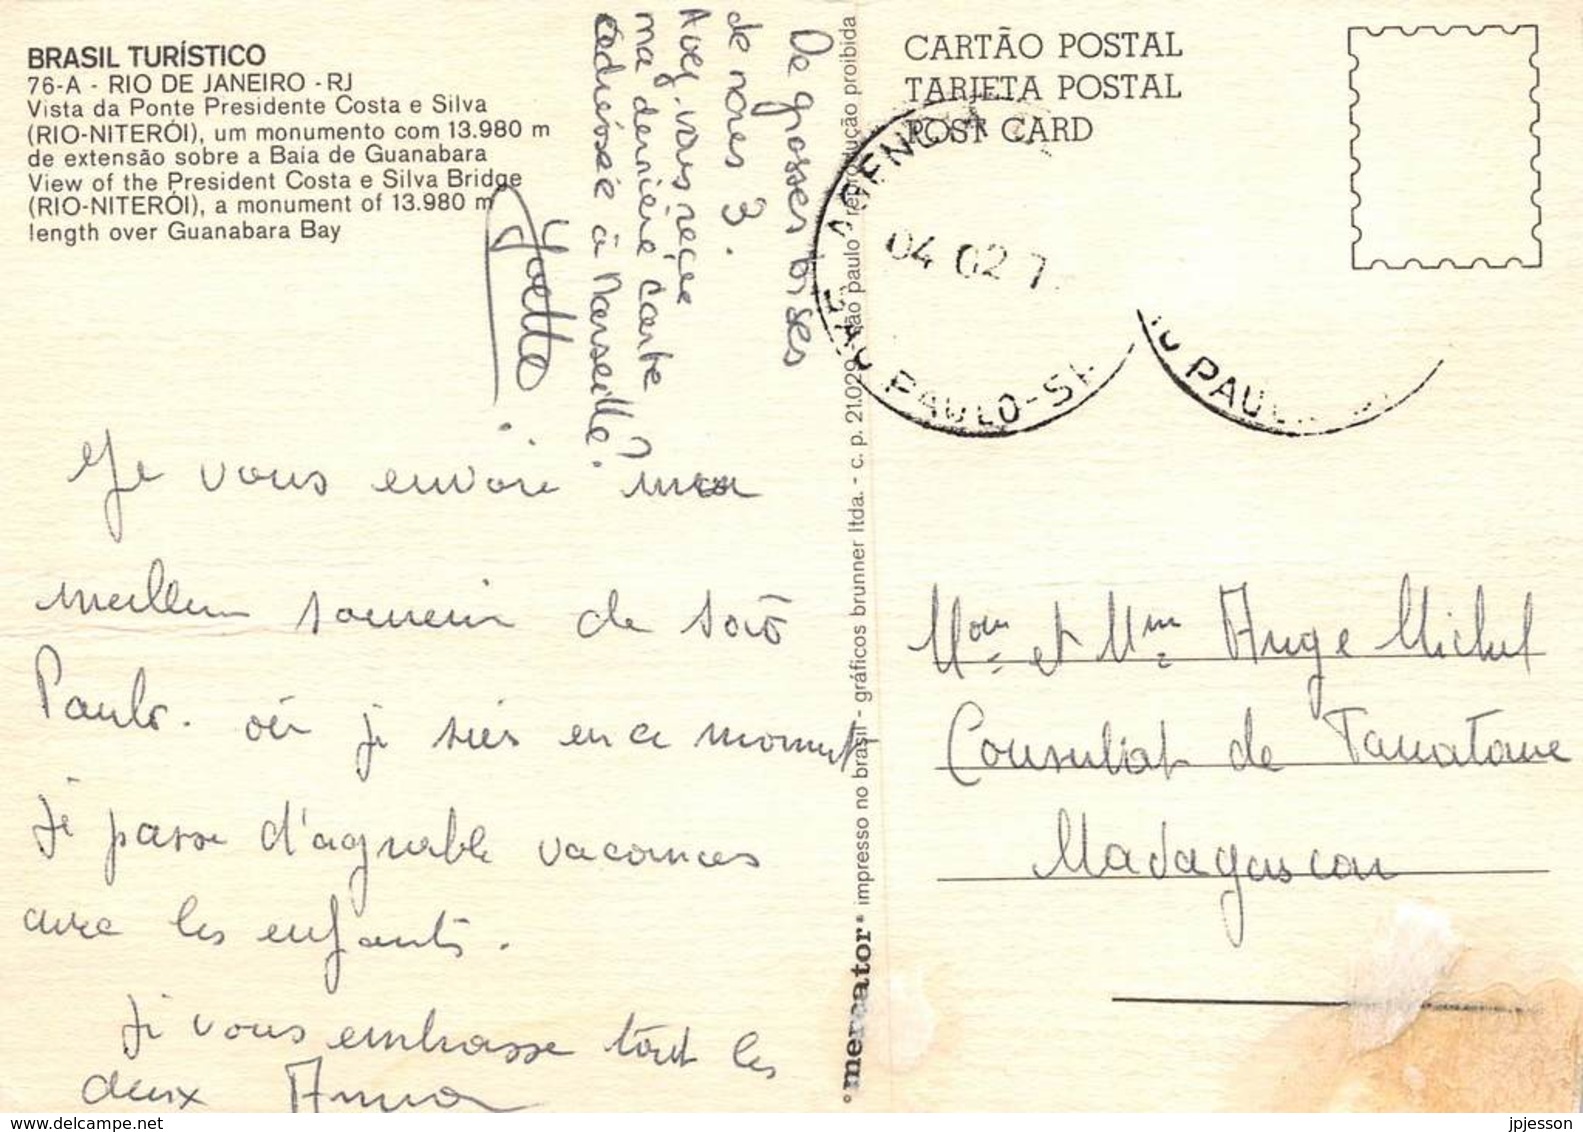 BRASIL TURÍSTICO
76-A - RIO DE JANEIRO - RJ
Vista da Ponte Presidente Costa e Silva
(RIO-NITERÓI), um monumento com 13.980 m
de extensão sobre a Baia de Guanabara
View of the President Costa e Silva Bridge
(RIO-NITERÓI), a monument of 13.980 m
length over Guanabara Bay
De grosses bises
de nous 3.
Avez vous reçue
ma dernière carte
adressée à Marseille?
Yvette
Je vous envoie mon
meilleur souvenir de São
Paulo. où je suis en ce moment
Je passe d'agreable vacances
avec les enfants.
Je vous embrasse tout les
deux Anna
°mercator° impresso no brasil - gráficos brunner ltda. - c. p. 21.029 - são paulo - reprodução proibida
CARTÃO POSTAL
TARJETA POSTAL
POST CARD
AGENCIA
04 02 7
PAULO-SP
PAUL
et Mme Ange Michel
Consulat de Tananarive
Madagascar
jpjesson